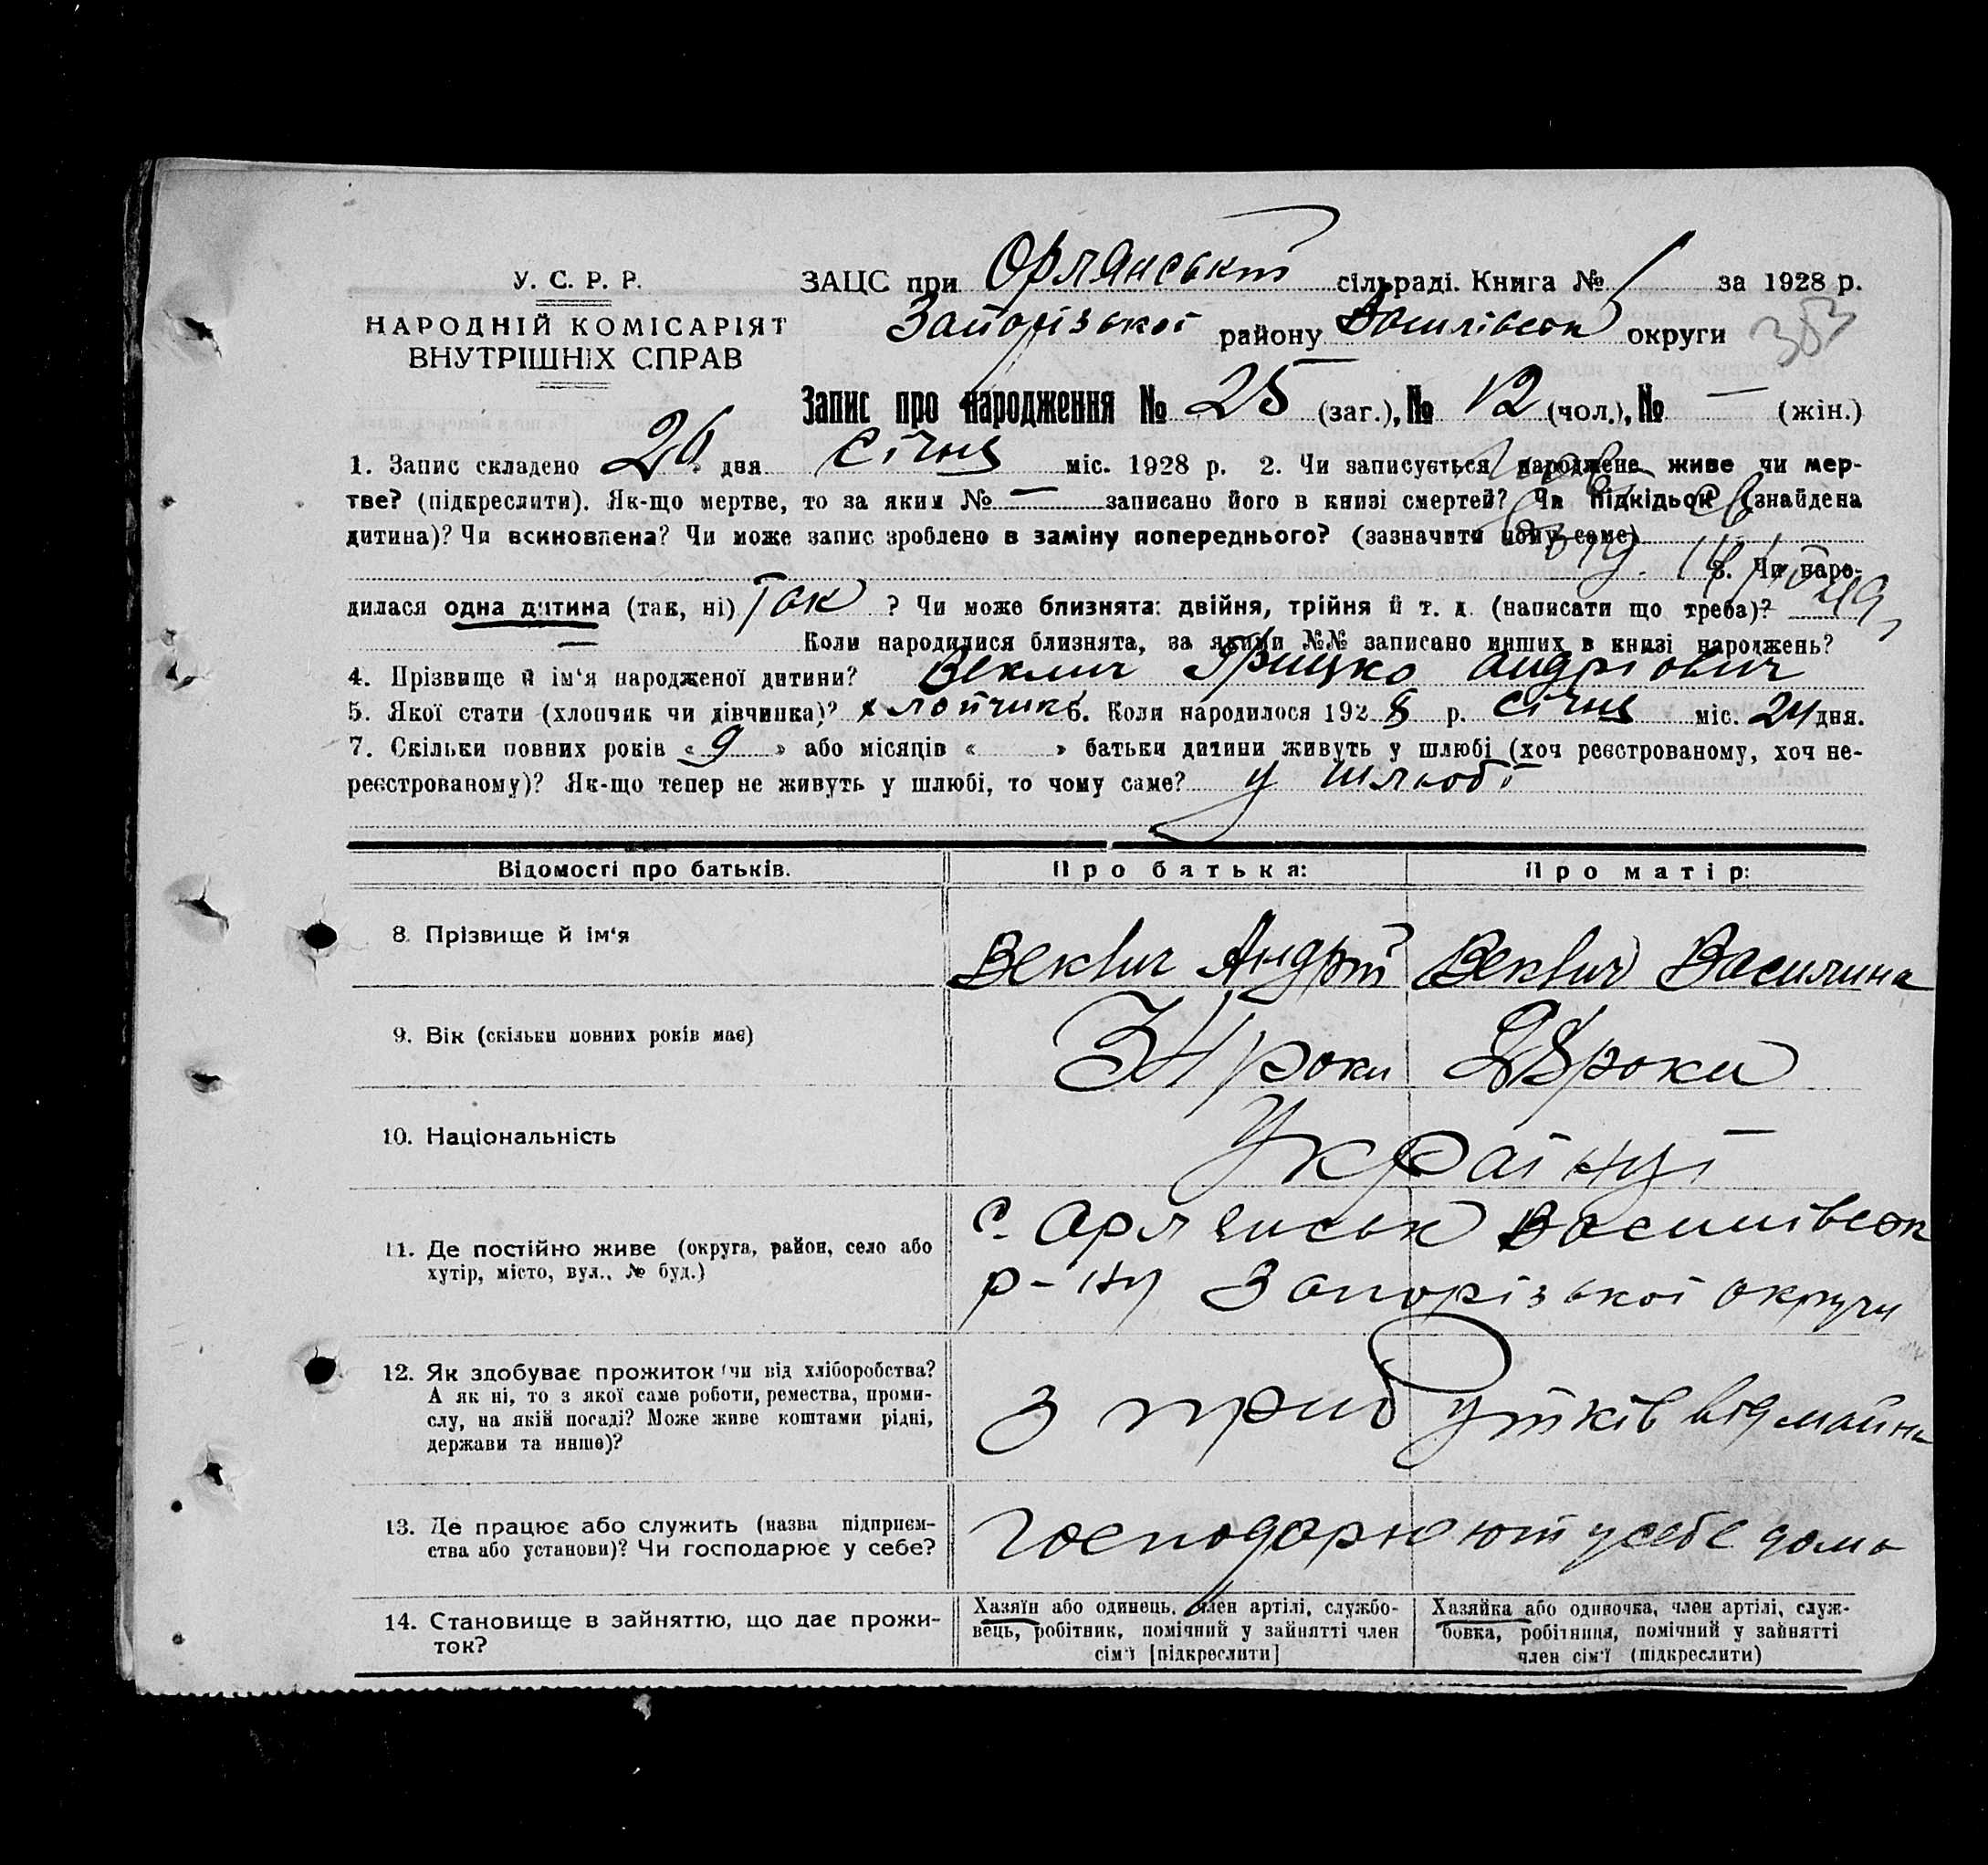 У. С. Р. Р.
НАРОДНІЙ КОМІСАРІЯТ
ВНУТРІШНІХ СПРАВ
ЗАЦС при Орлянській сільраді. Книга № 1 за 1928 р.
Запорізької району Василівськ округи
353
Запис про народження № 25 (заг.), № 12 (чол.), № — (жін.)
1. Запис складено 26 дня січня міс. 1928 р. 2. Чи записується народжене живе чи мер-
тве? (підкреслити). Як-що мертве, то за яким № — записано його в книзі смертей? Чи підкідьок (знайдена
дитина)? Чи всиновлена? Чи може запис зроблено в заміну попереднього? (зазначити чому саме)
3. Чи наро-
дилася одна дитина (так, ні) Так ? Чи може близнята: двійня, трійня й т. д. (написати що треба)?
— Коли народилися близнята, за якими №№ записано инших в книзі народжень?
4. Прізвище й ім'я народженої дитини? Веклич Грицко Андріович
5. Якої стати (хлопчик чи дівчинка)? хлопчик 6. Коли народилося 1928 р. січня міс. 24 дня.
7. Скільки повних років « 9 » або місяців « » батьки дитини живуть у шлюбі (хоч реєстрованому, хоч не-
реєстрованому)? Як-що тепер не живуть у шлюбі, то чому саме? у шлюбі
Відомості про батьків. Про батька: Про матір:
8. Прізвище й ім'я Веклич Андрій Веклич Василина
9. Вік (скільки повних років має) 34 роки 28 роки
10. Національність Українці
11. Де постійно живе (округа, район, село або
хутір, місто, вул., № буд.)
с. Орлянськ Василівськ
р-ну Запорізької округи
12. Як здобуває прожиток (чи від хліборобства?
А як ні, то з якої саме роботи, ремества, проми-
слу, на якій посаді? Може живе коштами рідні,
держави та инше)?
з прибутків від майна
13. Де працює або служить (назва підприєм-
ства або установи)? Чи господарює у себе?
господарюють у себе дома
14. Становище в зайняттю, що дає прожи-
ток?
Хазяїн або одинець, член артілі, службо-
вець, робітник, помічний у зайнятті член
сім'ї [підкреслити]
Хазяйка або одиночка, член артілі, служ-
бовка, робітниця, помічний у зайнятті
член сім'ї (підкреслити)